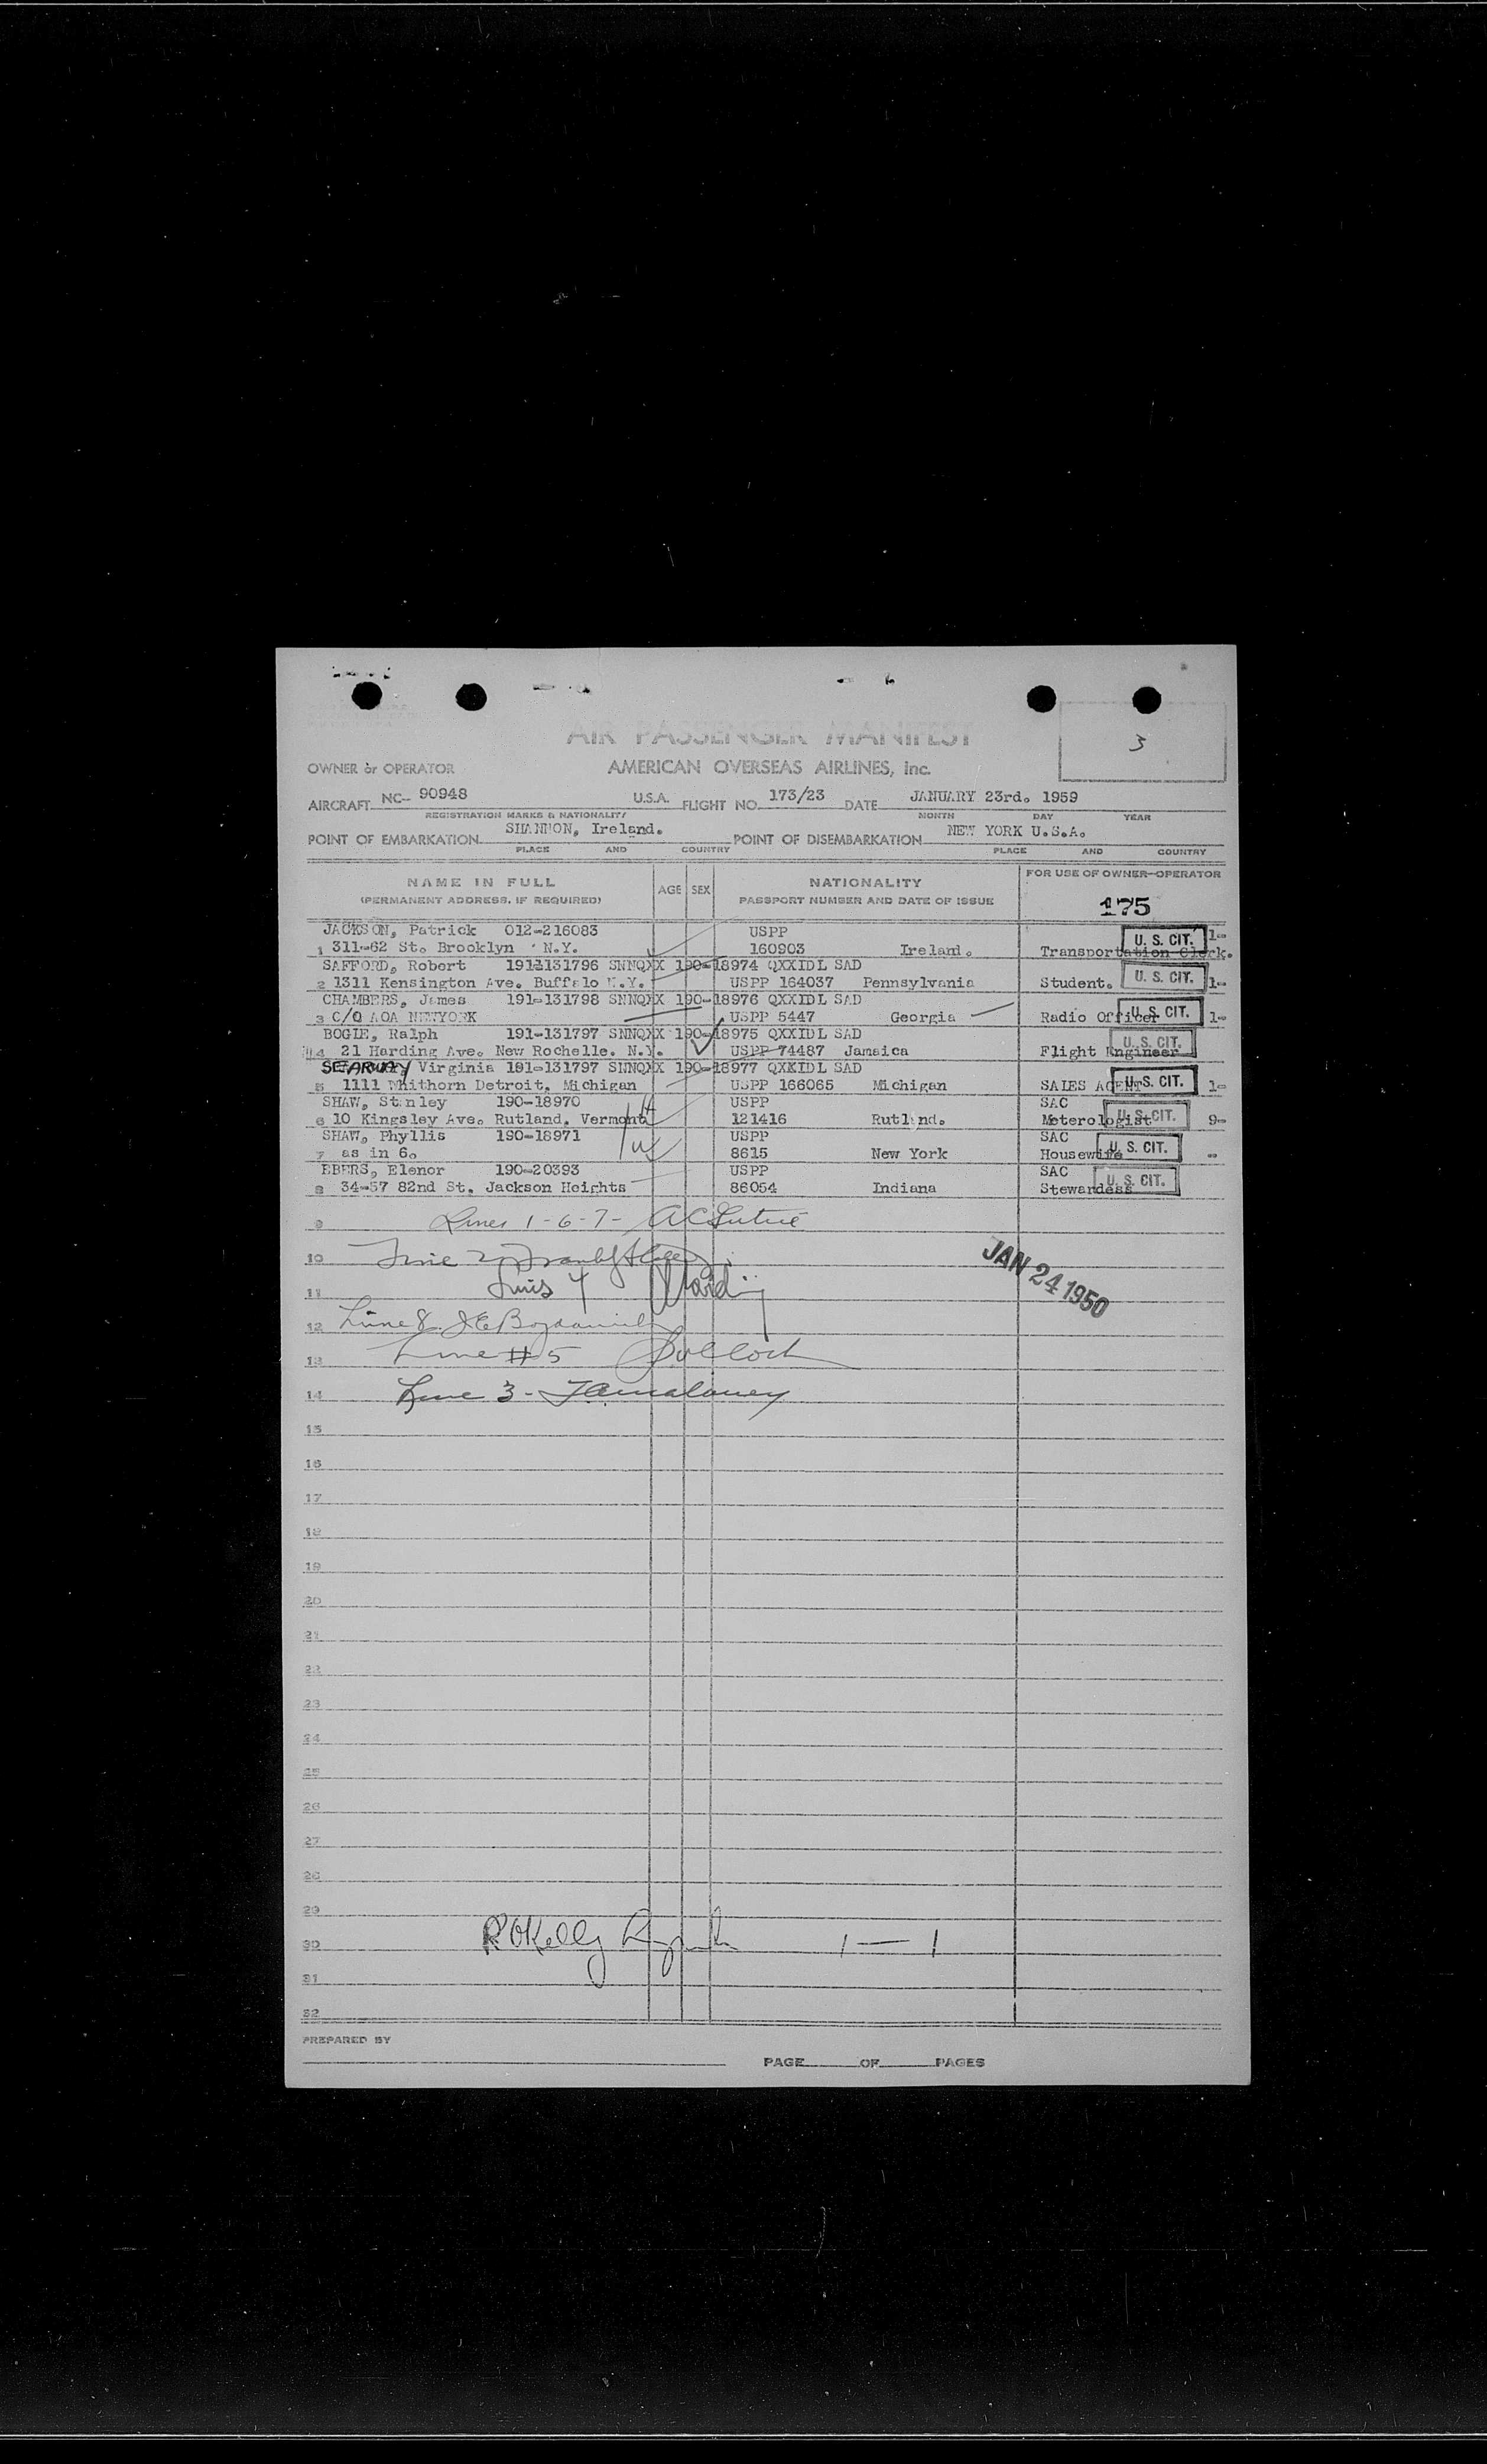 3
AIR PASSENGER MANIFEST
OWNER or OPERATOR AMERICAN OVERSEAS AIRLINES, Inc.
AIRCRAFT NC- 90948 U.S.A. FLIGHT NO. 173/23 DATE JANUARY 23rd. 1959
REGISTRATION MARKS & NATIONALITY MONTH DAY YEAR
POINT OF EMBARKATION SHANNON, Ireland. POINT OF DISEMBARKATION NEW YORK U.S.A.
PLACE AND COUNTRY PLACE AND COUNTRY
NAME IN FULL AGE SEX NATIONALITY FOR USE OF OWNER-OPERATOR
(PERMANENT ADDRESS, IF REQUIRED) PASSPORT NUMBER AND DATE OF ISSUE 175
JACKSON, Patrick 012-216083 USPP U. S. CIT. 1-
1 311-62 St. Brooklyn N.Y. 160903 Ireland. Transportation Clerk.
SAFFORD, Robert 131796 SNNQXX 190-18974 QXXIDL SAD U. S. CIT.
2 1311 Kensington Ave. Buffalo N.Y. USPP 164037 Pennsylvania Student. 1-
CHAMBERS, James 191-131798 SNNQXX 190-18976 QXXIDL SAD
3 C/O AOA NEWYORK USPP 5447 Georgia Radio Officer U. S. CIT. 1-
BOGIE, Ralph 191-131797 SNNQXX 190-18975 QXXIDL SAD U. S. CIT.
4 21 Harding Ave. New Rochelle. N.Y. USPP 74487 Jamaica Flight Engineer
SEARWAY Virginia 191-131797 SNNQXX 190-18977 QXKIDL SAD
5 1111 Whithorn Detroit, Michigan USPP 166065 Michigan SALES AGENT U. S. CIT. 1-
SHAW, Stanley 190-18970 USPP SAC
6 10 Kingsley Ave. Rutland, Vermont 121416 Rutland. Meterologist U. S. CIT. 9-
SHAW, Phyllis 190-18971 USPP SAC
7 as in 6. 8615 New York Housewife U. S. CIT. -
EBERS, Elenor 190-20393 USPP SAC
8 34-57 82nd St. Jackson Heights 86054 Indiana Stewardess U. S. CIT.
9 Lines 1-6-7-
10 Line 2
JAN 24 1950
11 4
12 Line 8
13 Line #5
14 Line 3 -
15
16
17
18
19
20
21
22
23
24
25
26
27
28
29
30 R OKelly 1 — 1
31
32
PREPARED BY
PAGE OF PAGES